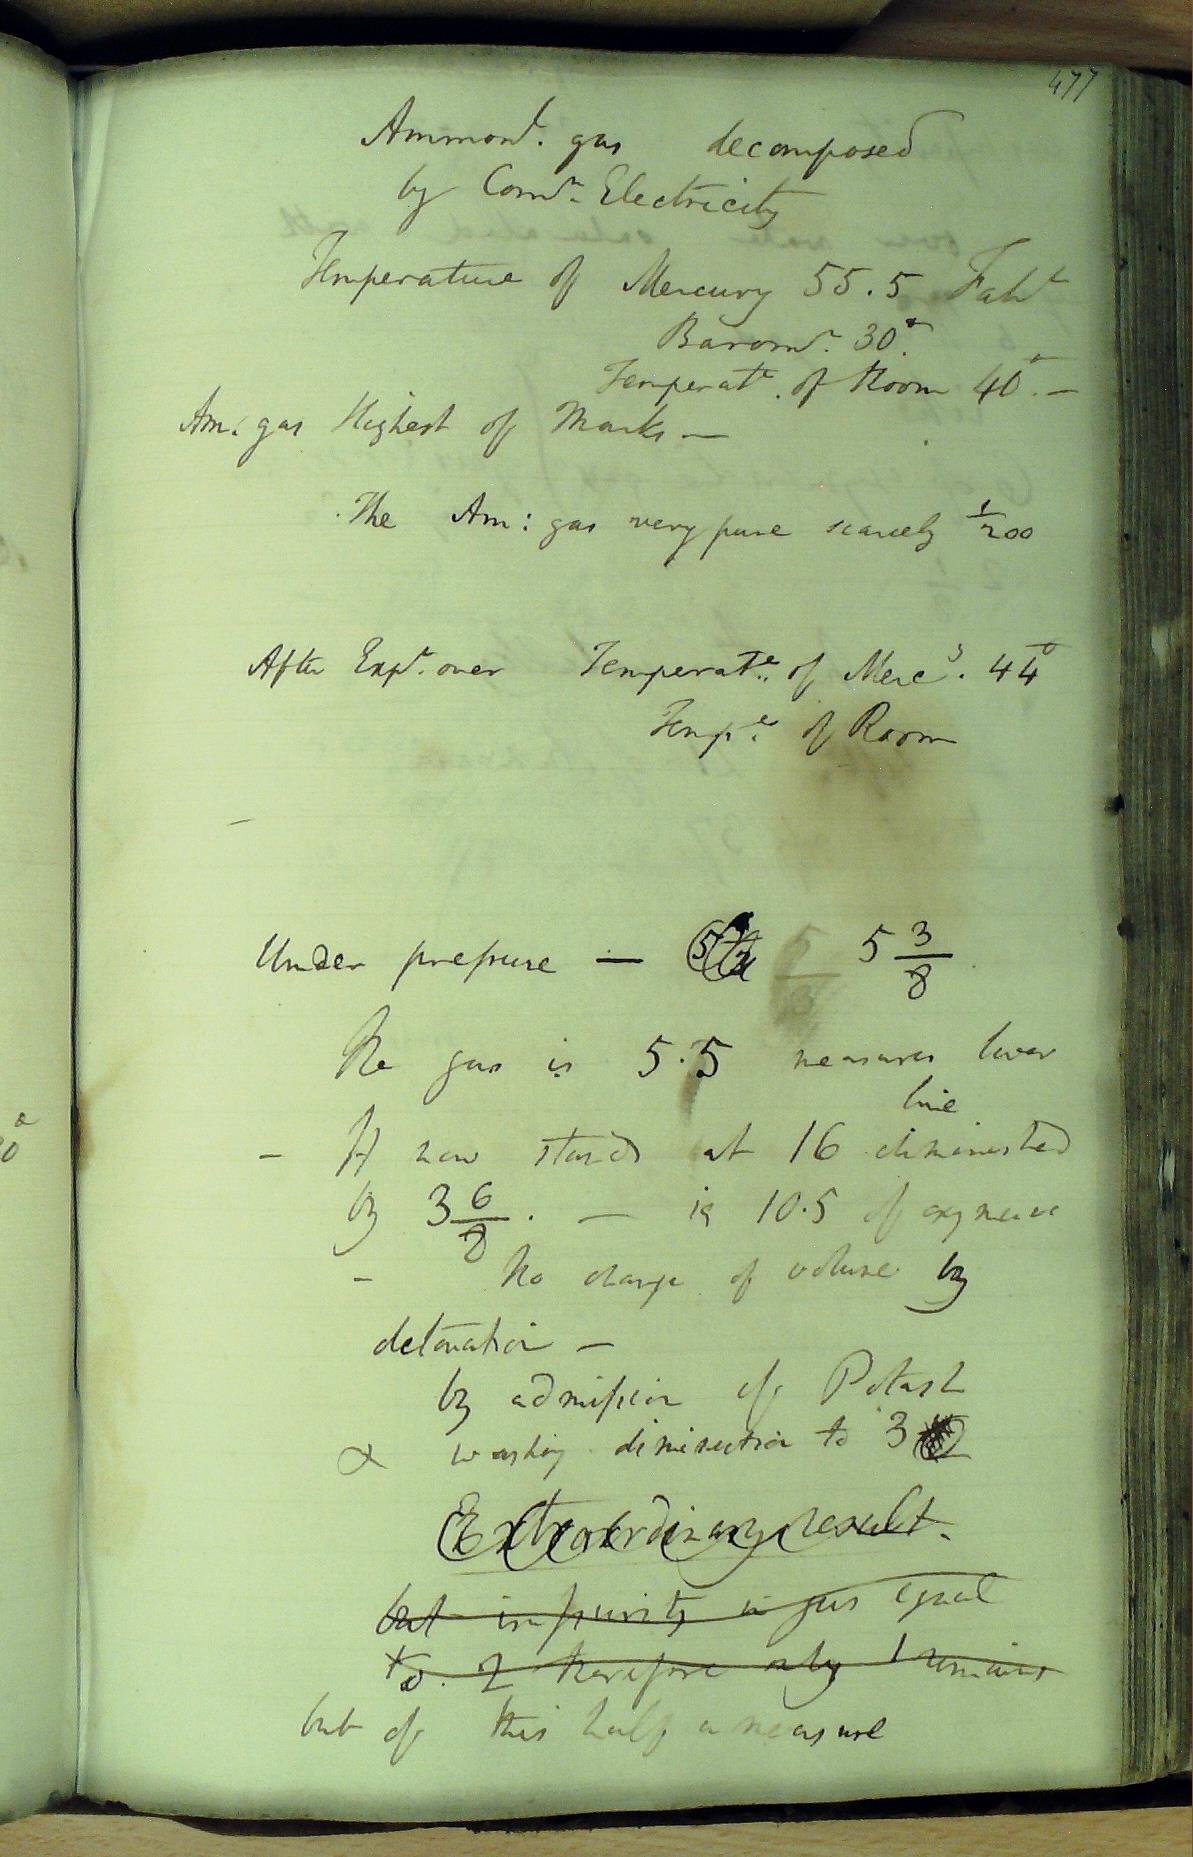 477
Ammonl. gas decomposed
by Comn. Electricity
Temperature of Mercury 55.5 Faht
Baromr. 30.
Temperate. of Room 40°. —
Am: gas Highest of Marks —
The Am: gas very pure scarcely 1/200
After Expt. over Temperate. of Mercy. 44°
Tempe. of Room
Under pressure — 5 3/8
The gas is 5.5 measures lower
line
— It now stands at 16 diminished
by 3 6/8. — is 10.5 of
— No change of volume by
detonation —
by admission of Potash
& washing diminution to 3
Extraordinary result.
but impurity in gas equal
to. 2 therefore only 1 remains
but of this half a measure